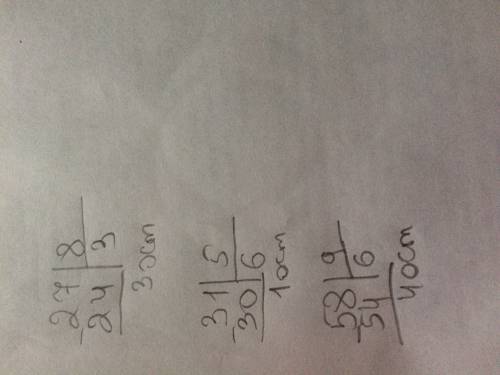 -27|8
24|3
3ост
-31|5
30|6
1ост
-58|9
54|6
4ост